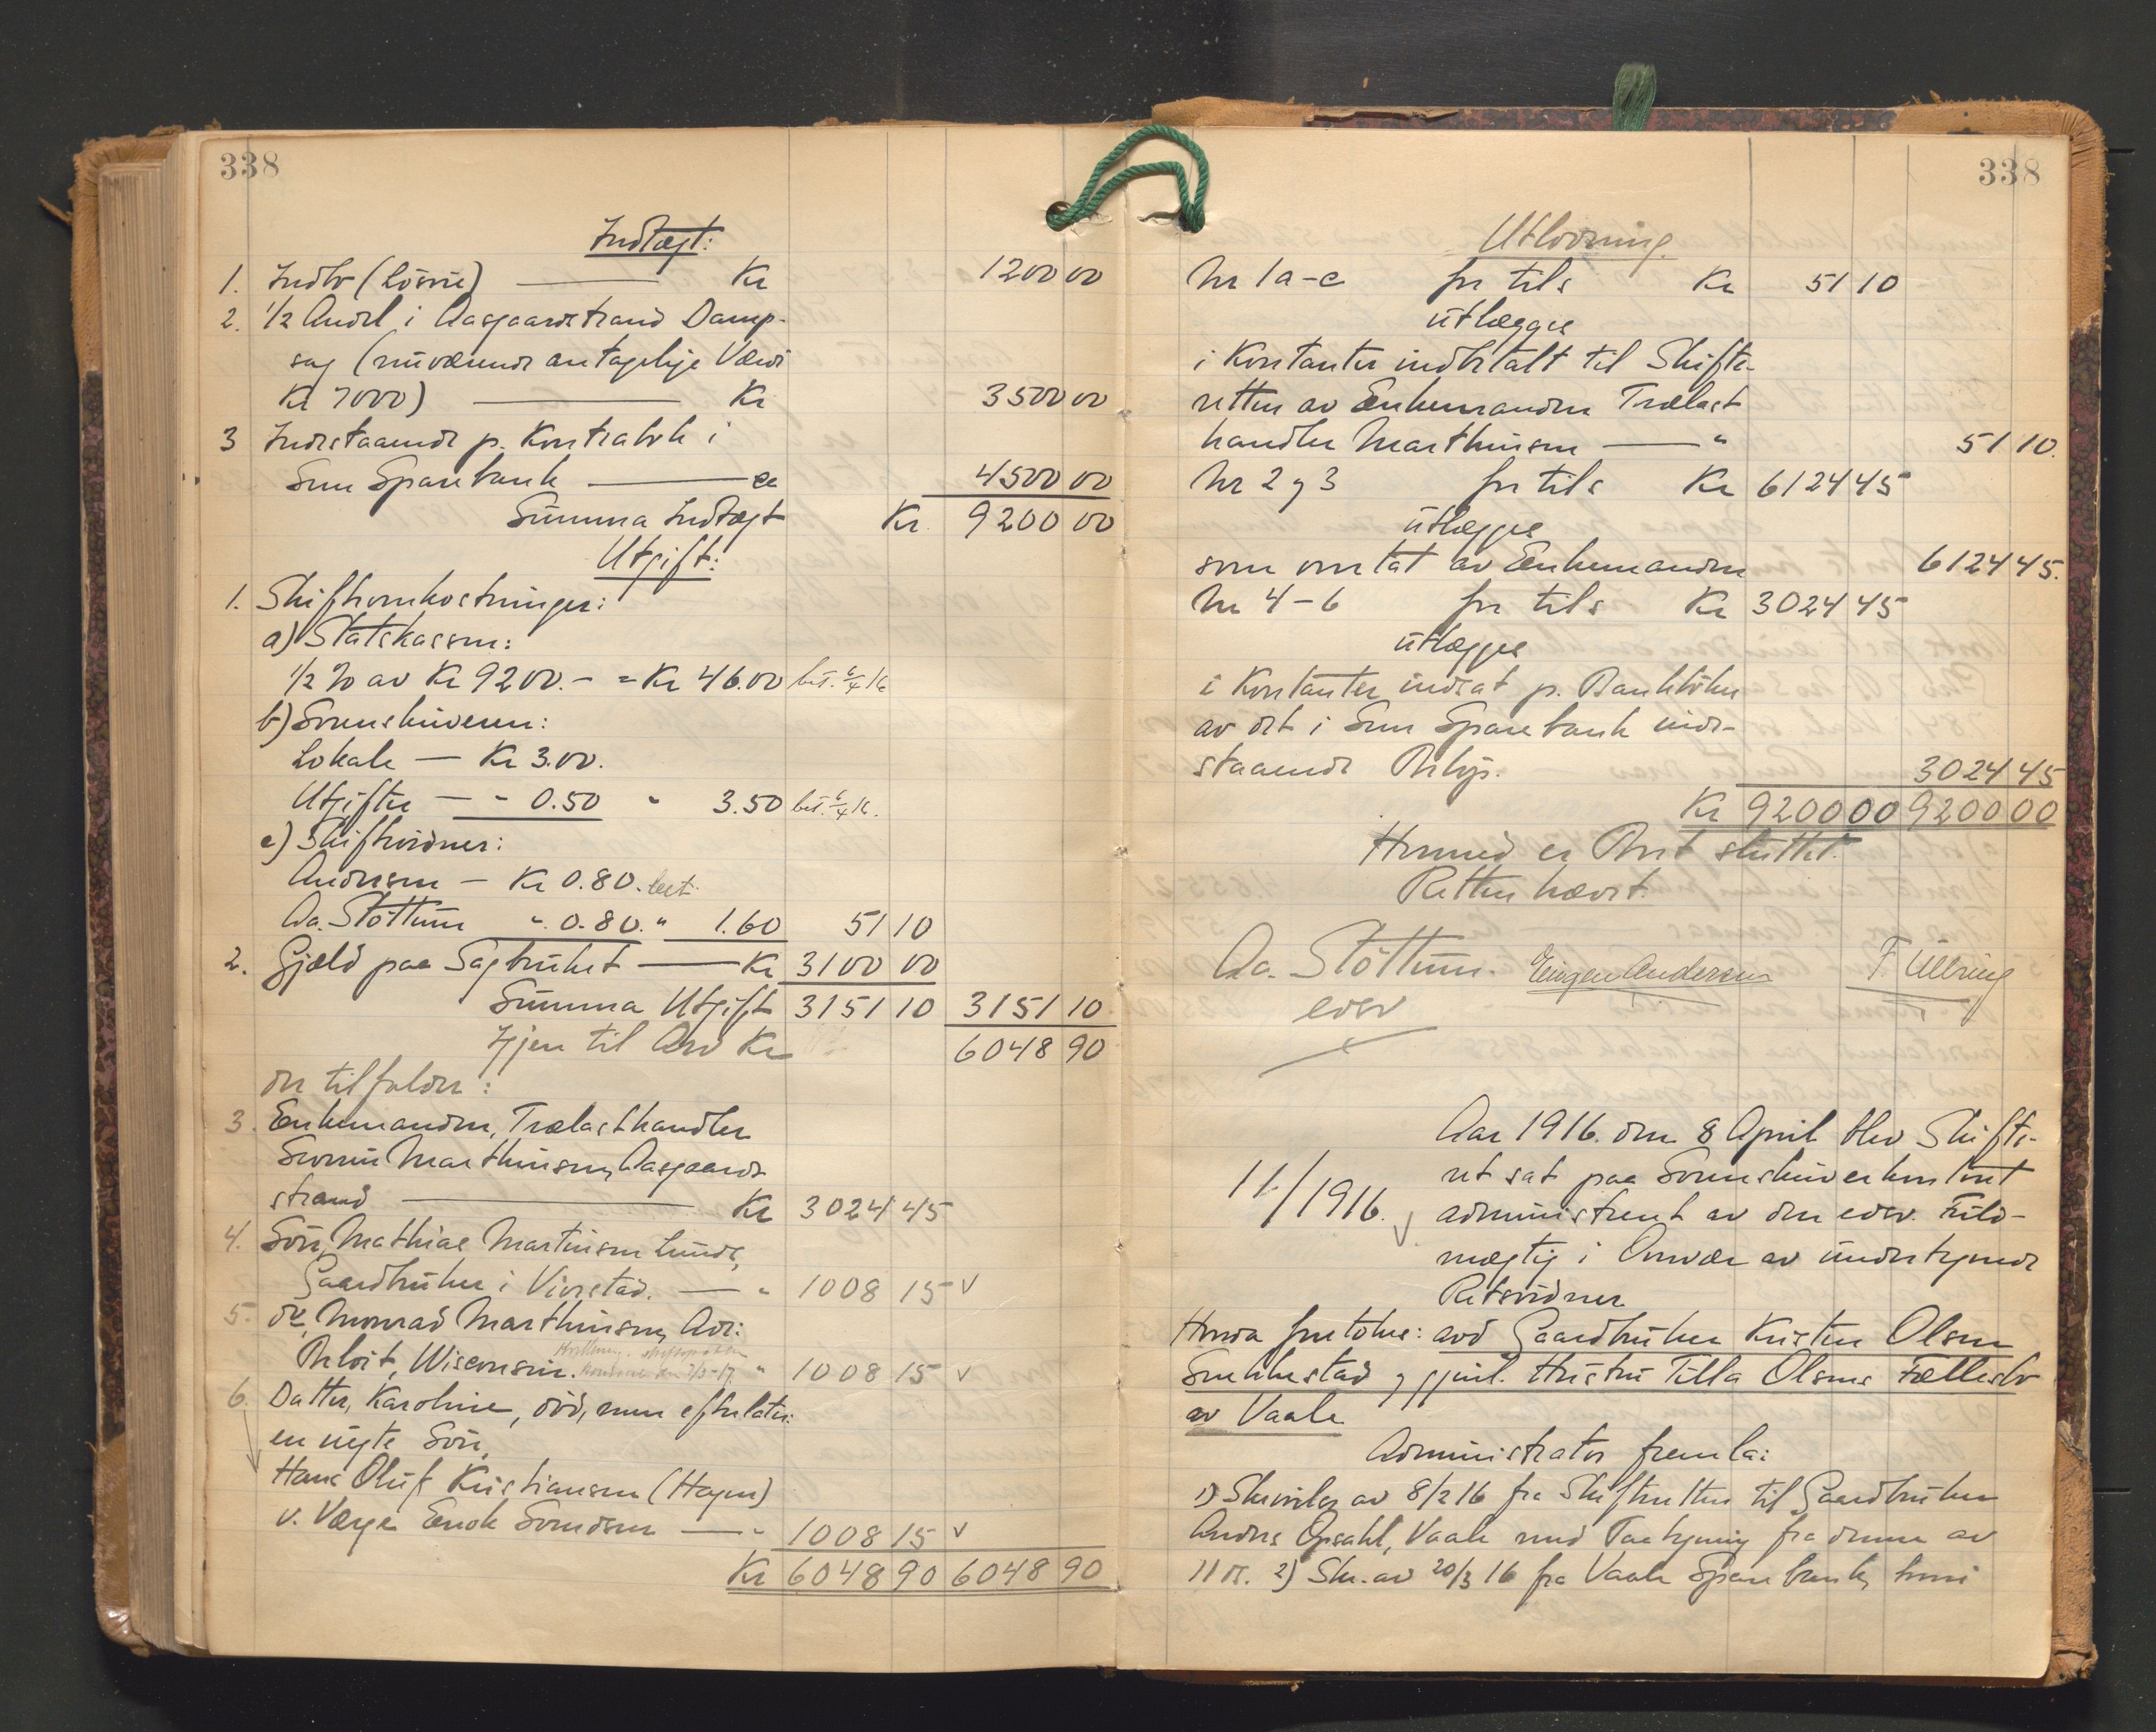 338
Indtægt:
1. Indbo (Løsøre) — Kr 1200 00
2. 1/2 Andel i Aasgaardstrand Damp-
sag (nuværende antagelige Værdi
Kr 7000) — Kr 3500 00
3 Indestaaende p. Kontrabok i
Sem Sparebank — " 4500 00
Summa Indtægt Kr. 9200 00
Utgift:
1. Skifteomkostninger:
a) Statskassen:
1/2 % av Kr 9200.- = Kr 46.00 bet. 6/4 16
b) Sorenskriveren:
Lokale — Kr 3.00.
Utgifter — " 0.50 " 3.50 bet. 6/4 16.
c) Skiftevidner:
Andersen — Kr 0.80. bet.
Aa. Støttum " 0.80. " 1.60 51 10
2. Gjæld paa Sagbruket — Kr 3100 00
Summa Utgift 3151 10 3151 10
Igjen til Arv Kr 6048 90
der tilfalder:
3. Enkemanden, Trælasthandler
Severin Marthinsen, Aasgaard-
strand — Kr 3024 45
4. Søn, Mathias Martinsen Lunde,
Gaardbruker i Vivestad. — " 1008 15 v
5. do, Monrad Marthinsen, Adr:
Beloit, Wisconsin. " 1008 15 v
6. Datter, Karoline, død, men efterlater:
en myndig Søn,
Hans Oluf Kristiansen (Hagen)
v. Værge Enok Svendsen — " 1008 15 v
Kr 6048 90 6048 90
338
Utlodning.
Nr 1a-c for tils Kr 51 10
utlægges
i Kontanter indbetalt til Skifte-
retten av Enkemanden Trælast
handler Marthinsen — " 51 10.
Nr 2 og 3 for tils Kr 6124 45
utlægges
som overtat av Enkemanden 6124 45.
Nr 4-6 for tils Kr 3024 45
utlægges
i Kontanter indsat p. Bankbøker
av det i Sem Sparebank inde-
staaende Beløp. 3024 45
Kr 9200 00 9200 00
Hermed er Boet sluttet.
Retten hævet.
Aa. Støttum. Eugen Andersen F. Ullring
edsv
Aar 1916. den 8 April blev Skifte-
ret sat paa Sorenskriverkontoret
11/1916. v administreret av den edsv. Fuld-
mægtig i Overvær av undertegnede
Retsvidner
Hvorda foretokes: avd Gaardbruker Kristen Olsen
Snekkestad og gjenl. Hustru Tilla Olsens Fællesbo
av Vaale
Administrator fremla:
1) Skrivelse av 8/2 16 fra Skifteretten til Gaardbruker
Anders Opsahl, Vaale med Paategning fra denne av
11 ds. 2) Skr. av 20/3 16 fra Vaale Sparebank, hvori